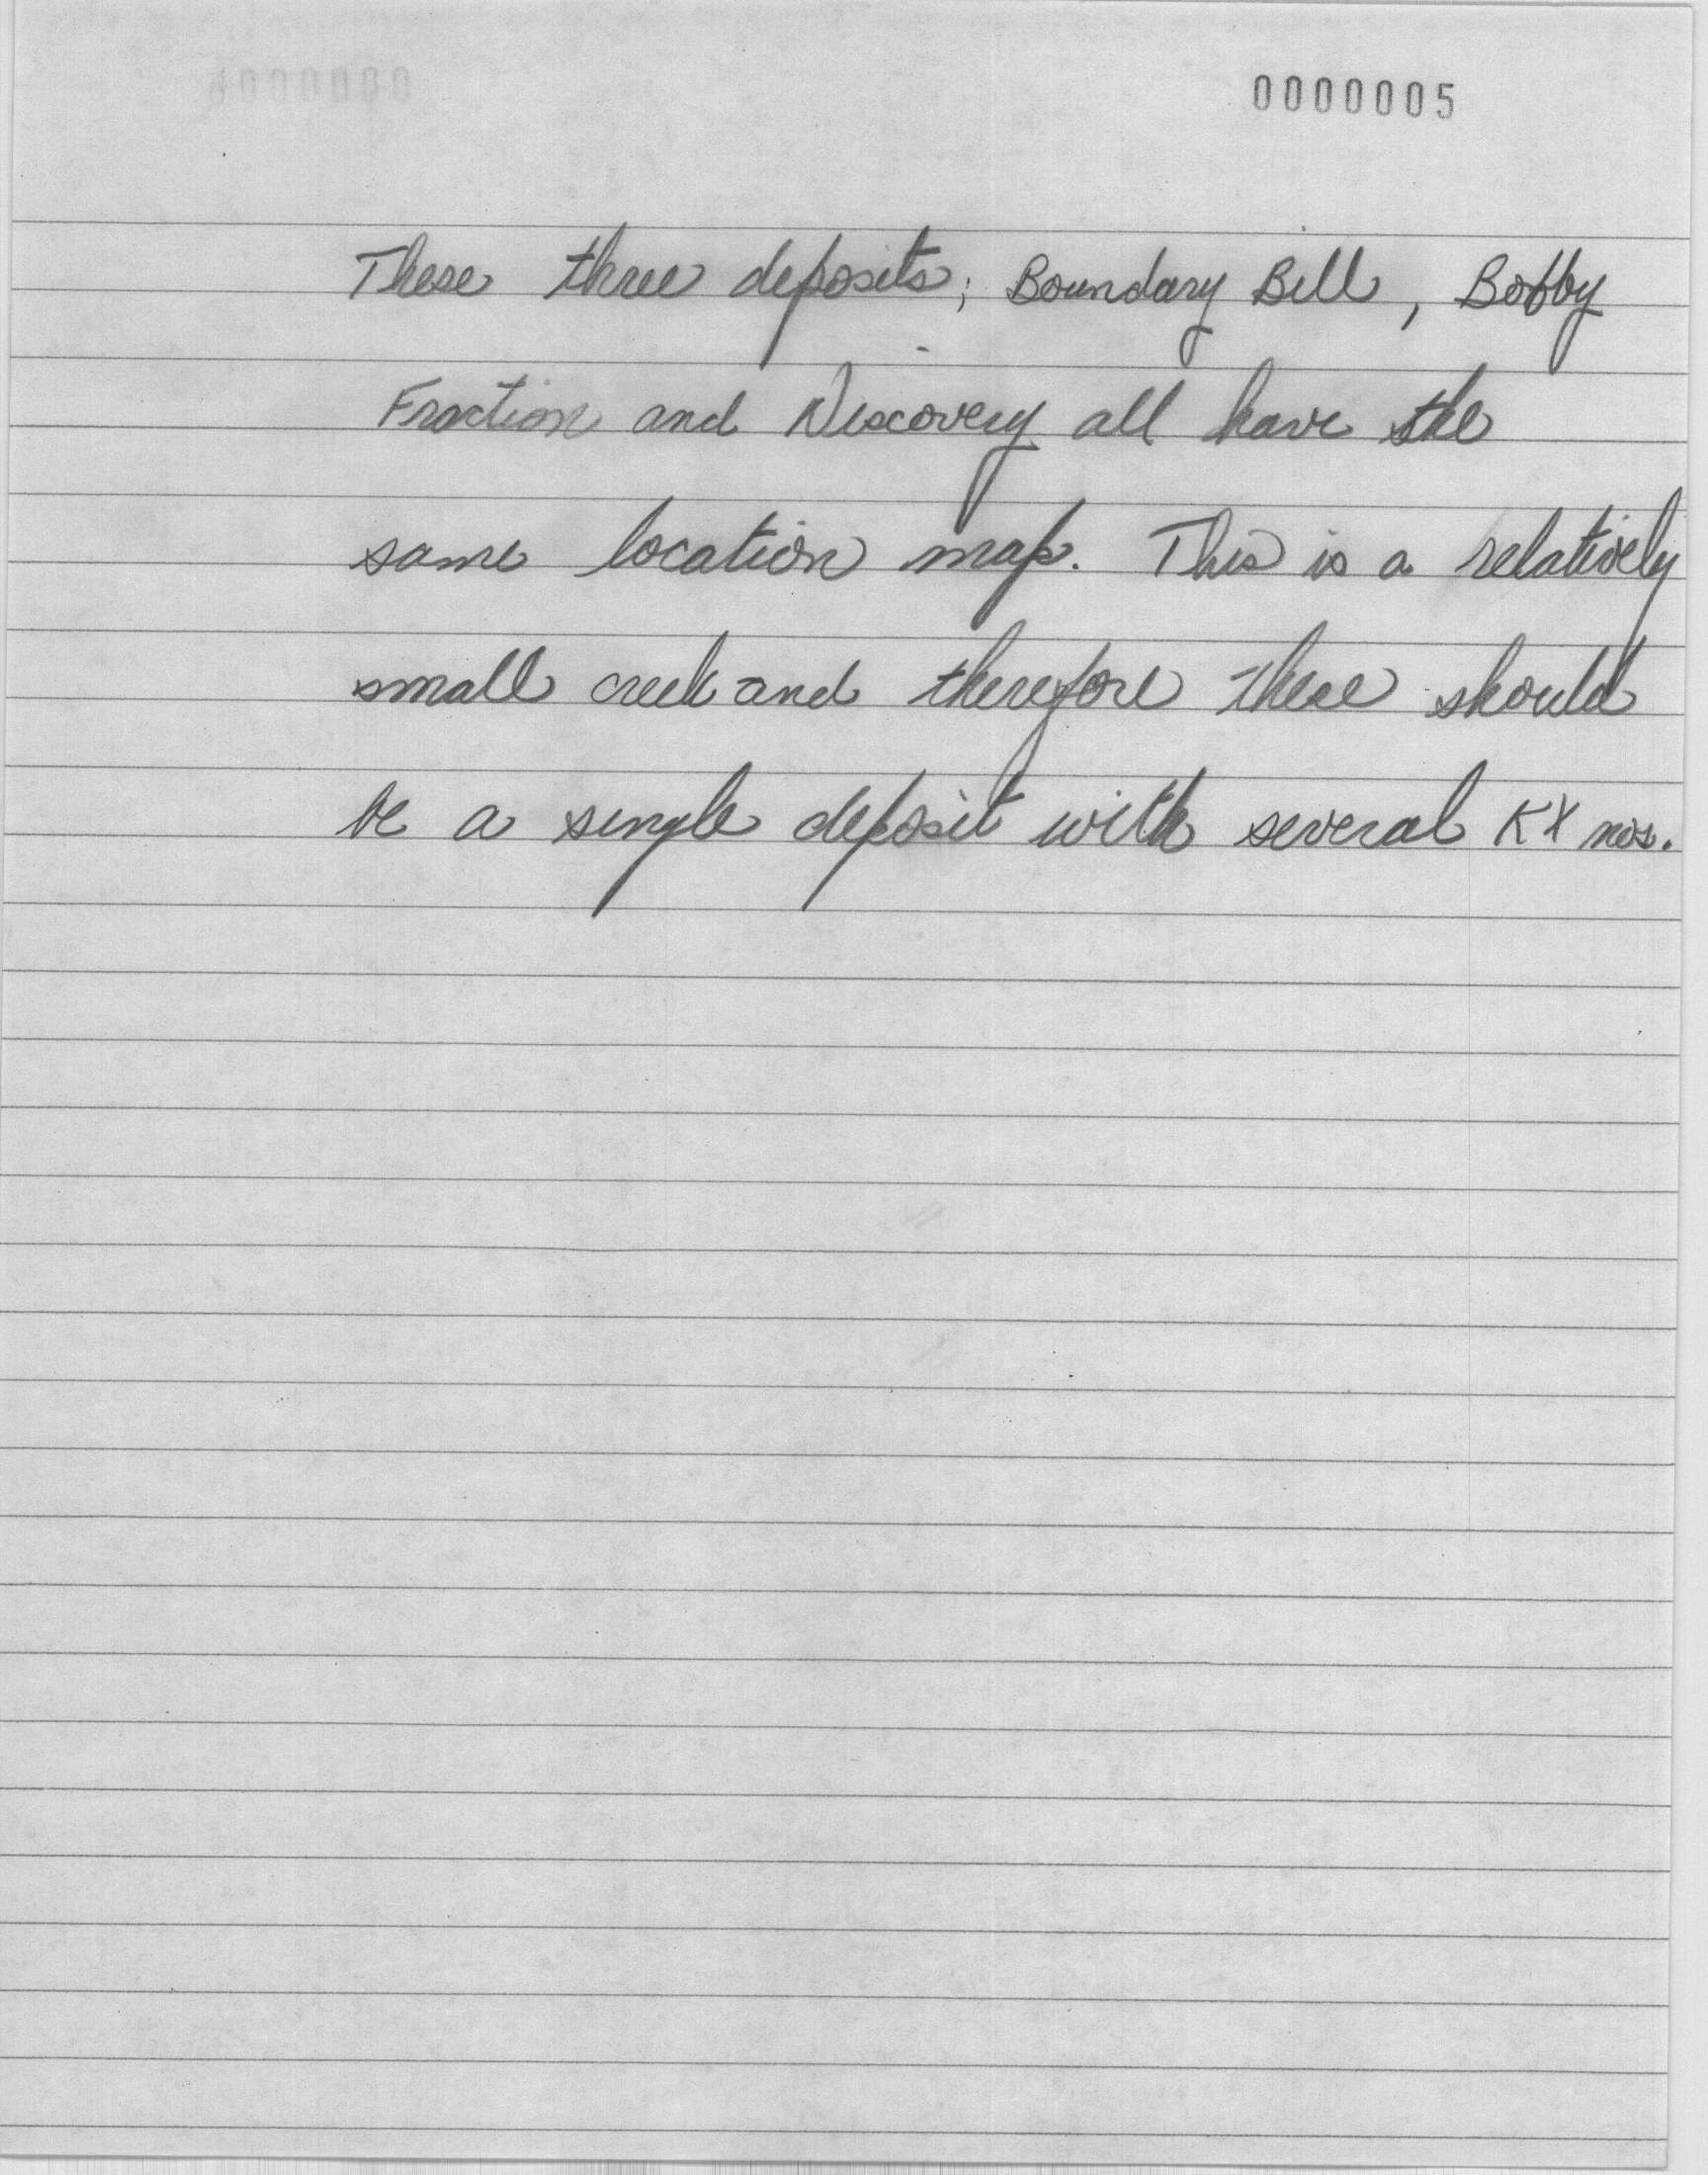 0000005
These three deposits; Boundary Bill, Bobby
Fraction and Discovery all have the
same location map. This is a relatively
small creek and therefore these should
be a single deposit with several KX nos.